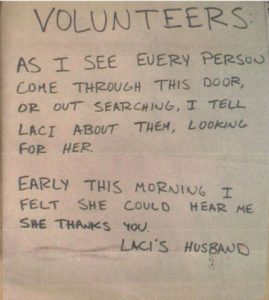 VOLUNTEERS:
AS I SEE EVERY PERSON
COME THROUGH THIS DOOR,
OR OUT SEARCHING, I TELL
LACI ABOUT THEM, LOOKING
FOR HER.
EARLY THIS MORNING I
FELT SHE COULD HEAR ME
SHE THANKS YOU.
LACI'S HUSBAND